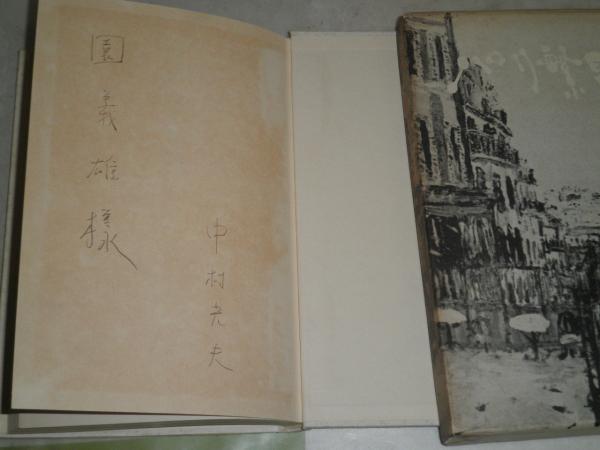 園義雄様
中村光夫